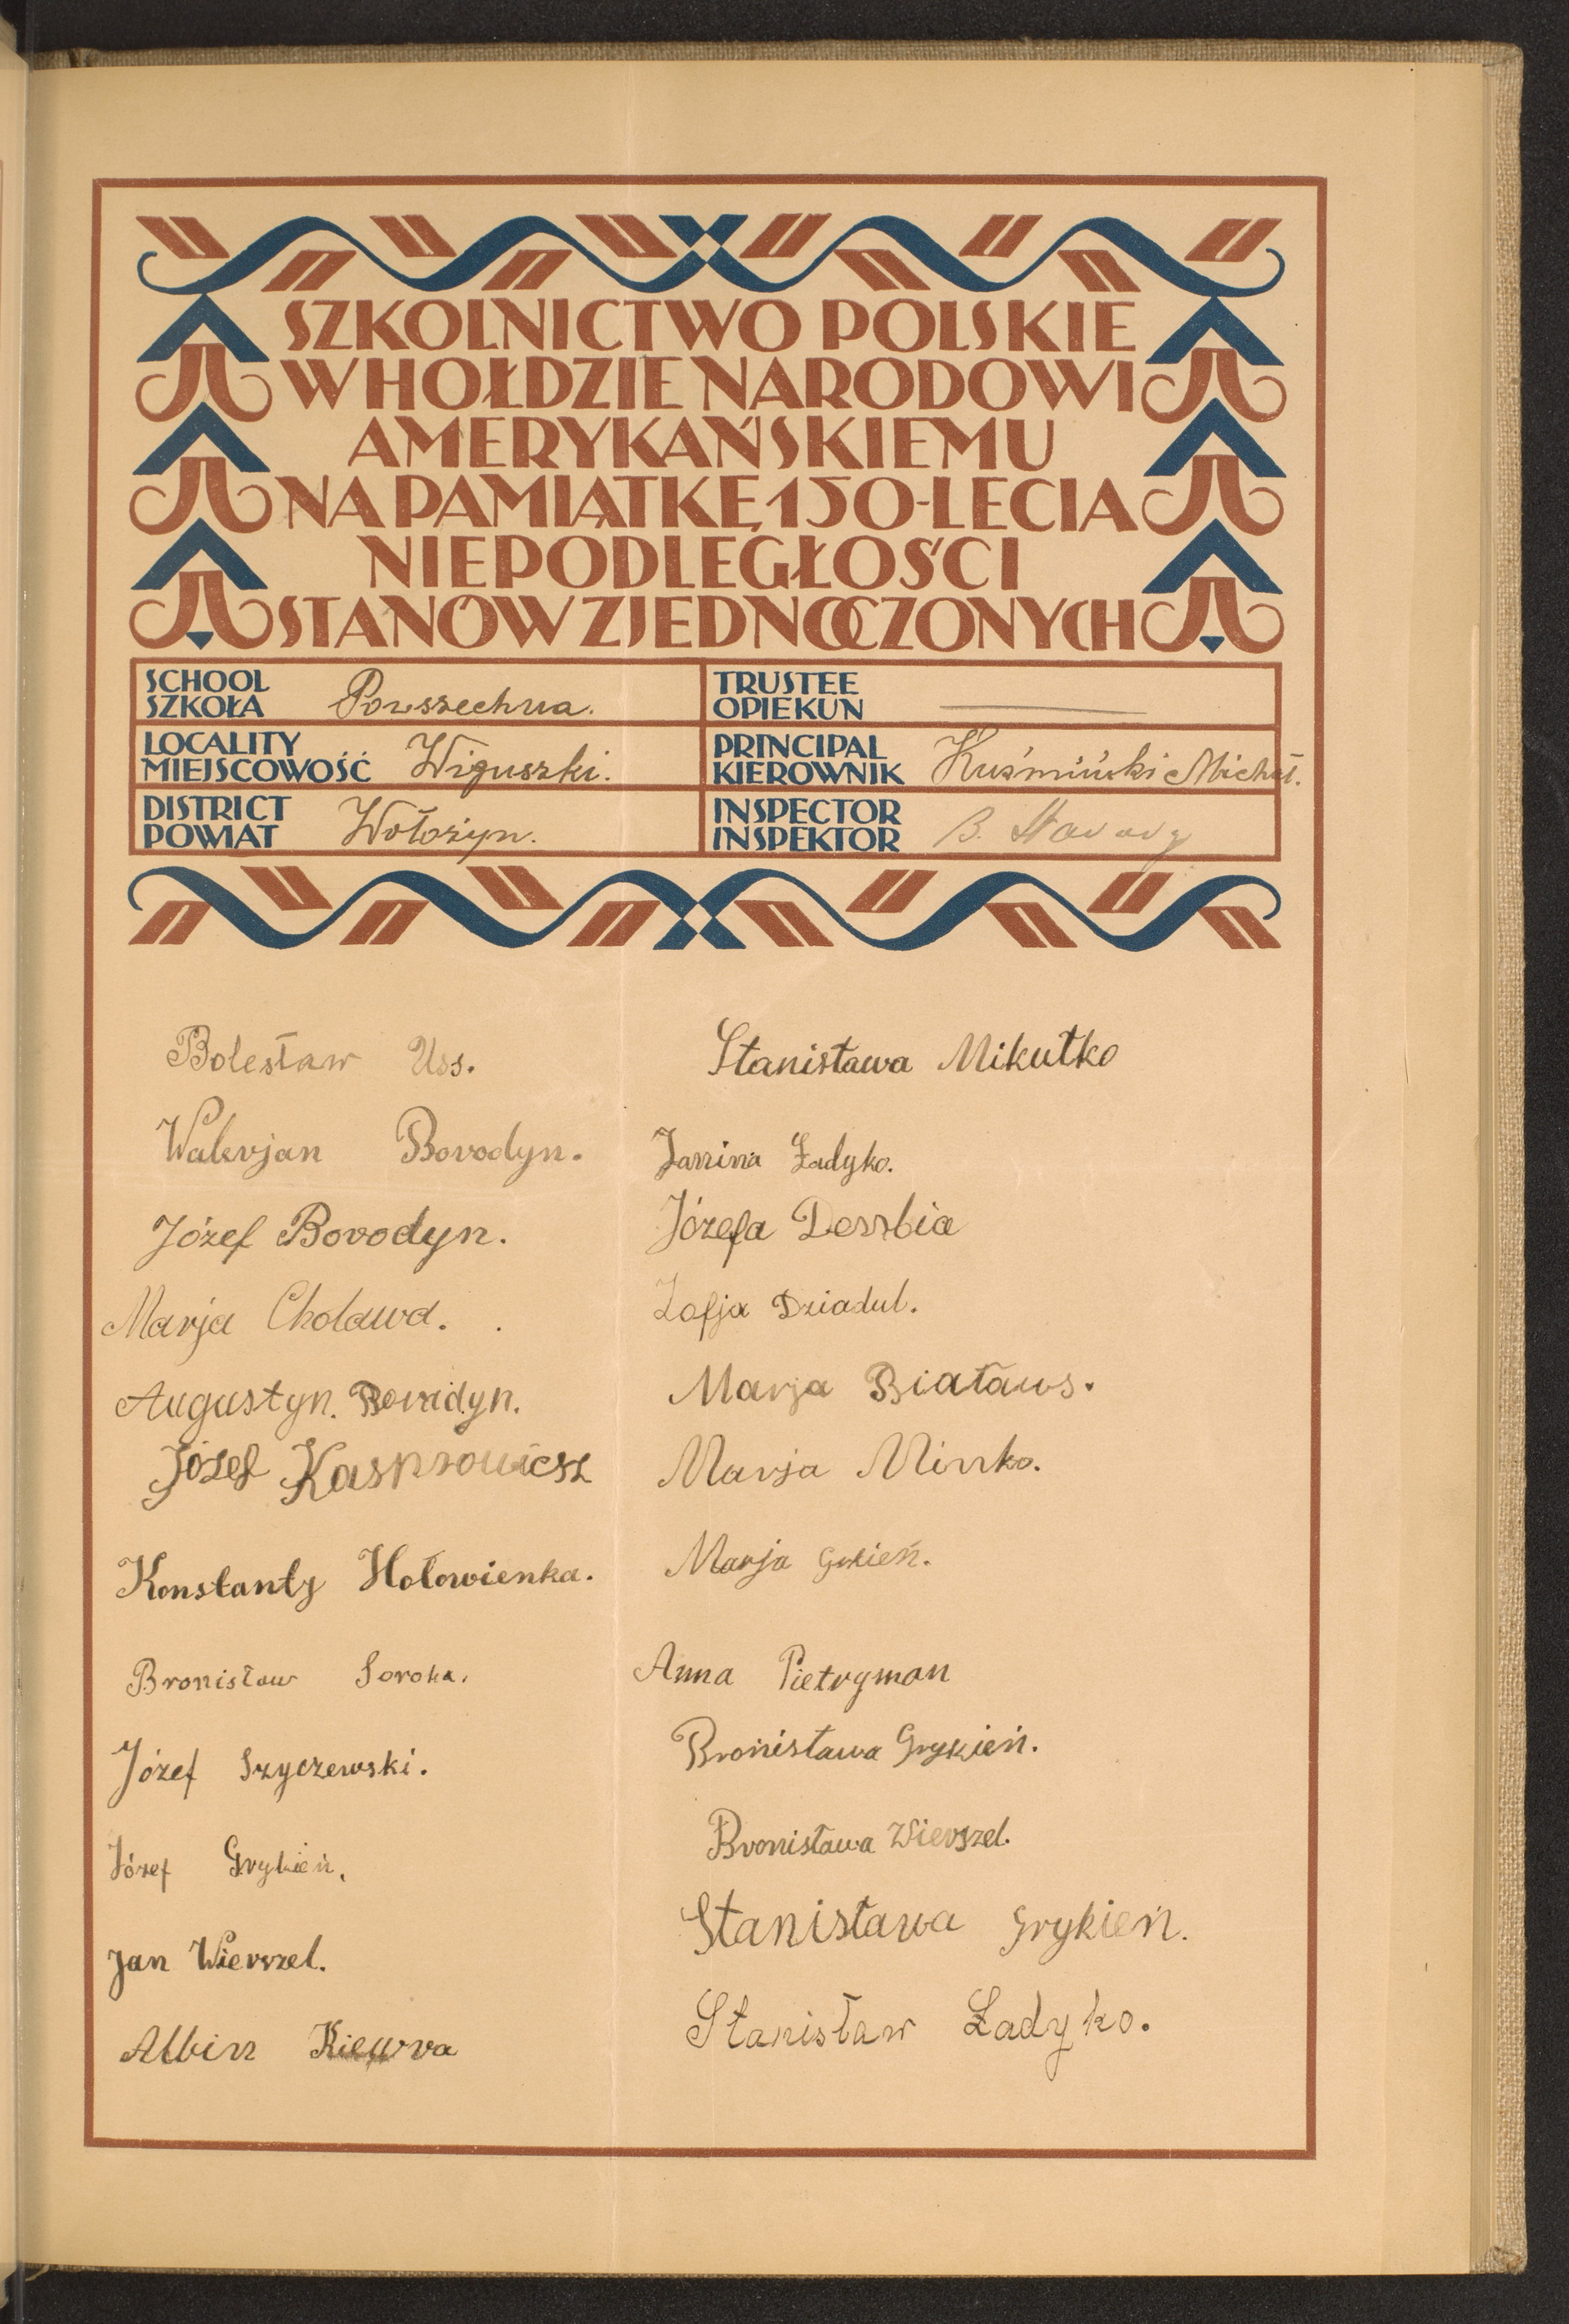 SZKOLNICTWO POLSKIE
W HOŁDZIE NARODOWI
AMERYKAŃSKIEMU
NA PAMIĄTKĘ 150-LECIA
NIEPODLEGŁOŚCI
STANÓW ZJEDNOCZONYCH
SCHOOL
SZKOŁA Powszechna.
TRUSTEE
OPIEKUN
LOCALITY
MIEJSCOWOŚĆ Wiguszki.
PRINCIPAL
KIEROWNIK Kuźmiński Michał.
DISTRICT
POWIAT Wołożyn.
INSPECTOR
INSPEKTOR B.
Bolesław Uss.
Walerjan Borodyn.
Józef Borodyn.
Marja Cholawa.
Augustyn. Borodyn.
Józef Kasprowicz
Konstanty Hołowienka.
Bronisław Soroka.
Józef Szyczewski.
Józef Grykień.
Jan Wierszel.
Albin
Stanisława Mikutko
Janina Ładyko.
Józefa Derrbia
Zofja Dziadul.
Marja Białaws.
Marja Minko.
Marja Grkień.
Anna Pietryman
Bronisława Grykień.
Bronisława Wierszel.
Stanisława Grykień.
Stanisław Ładyko.